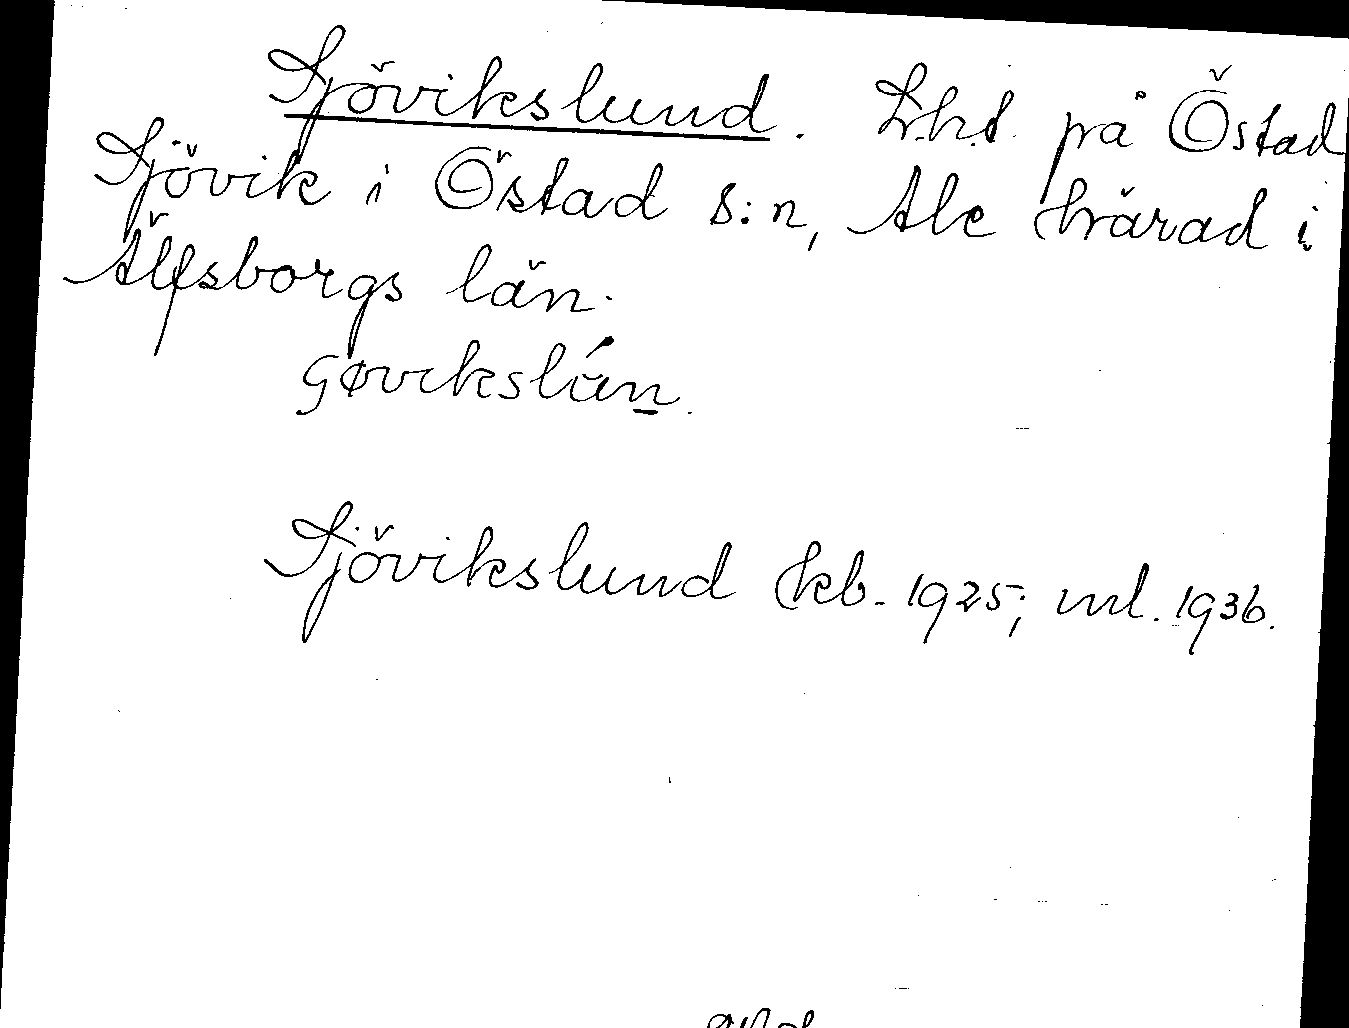 Sjövikslund. L.h.t. på Östad
Sjövik i Östad s:n, Ale härad i
Älfsborgs län.
Sjövikslund hfb. 1925; ml. 1936.